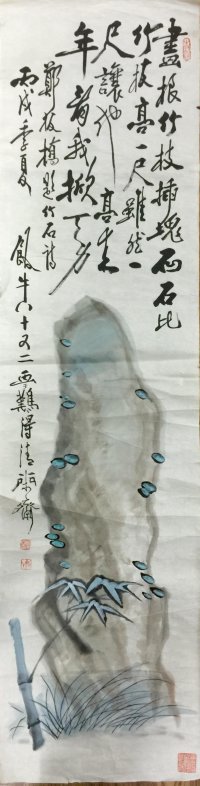 畫根竹枝插塊石石比
竹枝高一尺雖然一
尺讓他高來
年看我掀天力
鄭板橋題竹石詩
丙戌季夏
飯牛八十又二 難得清